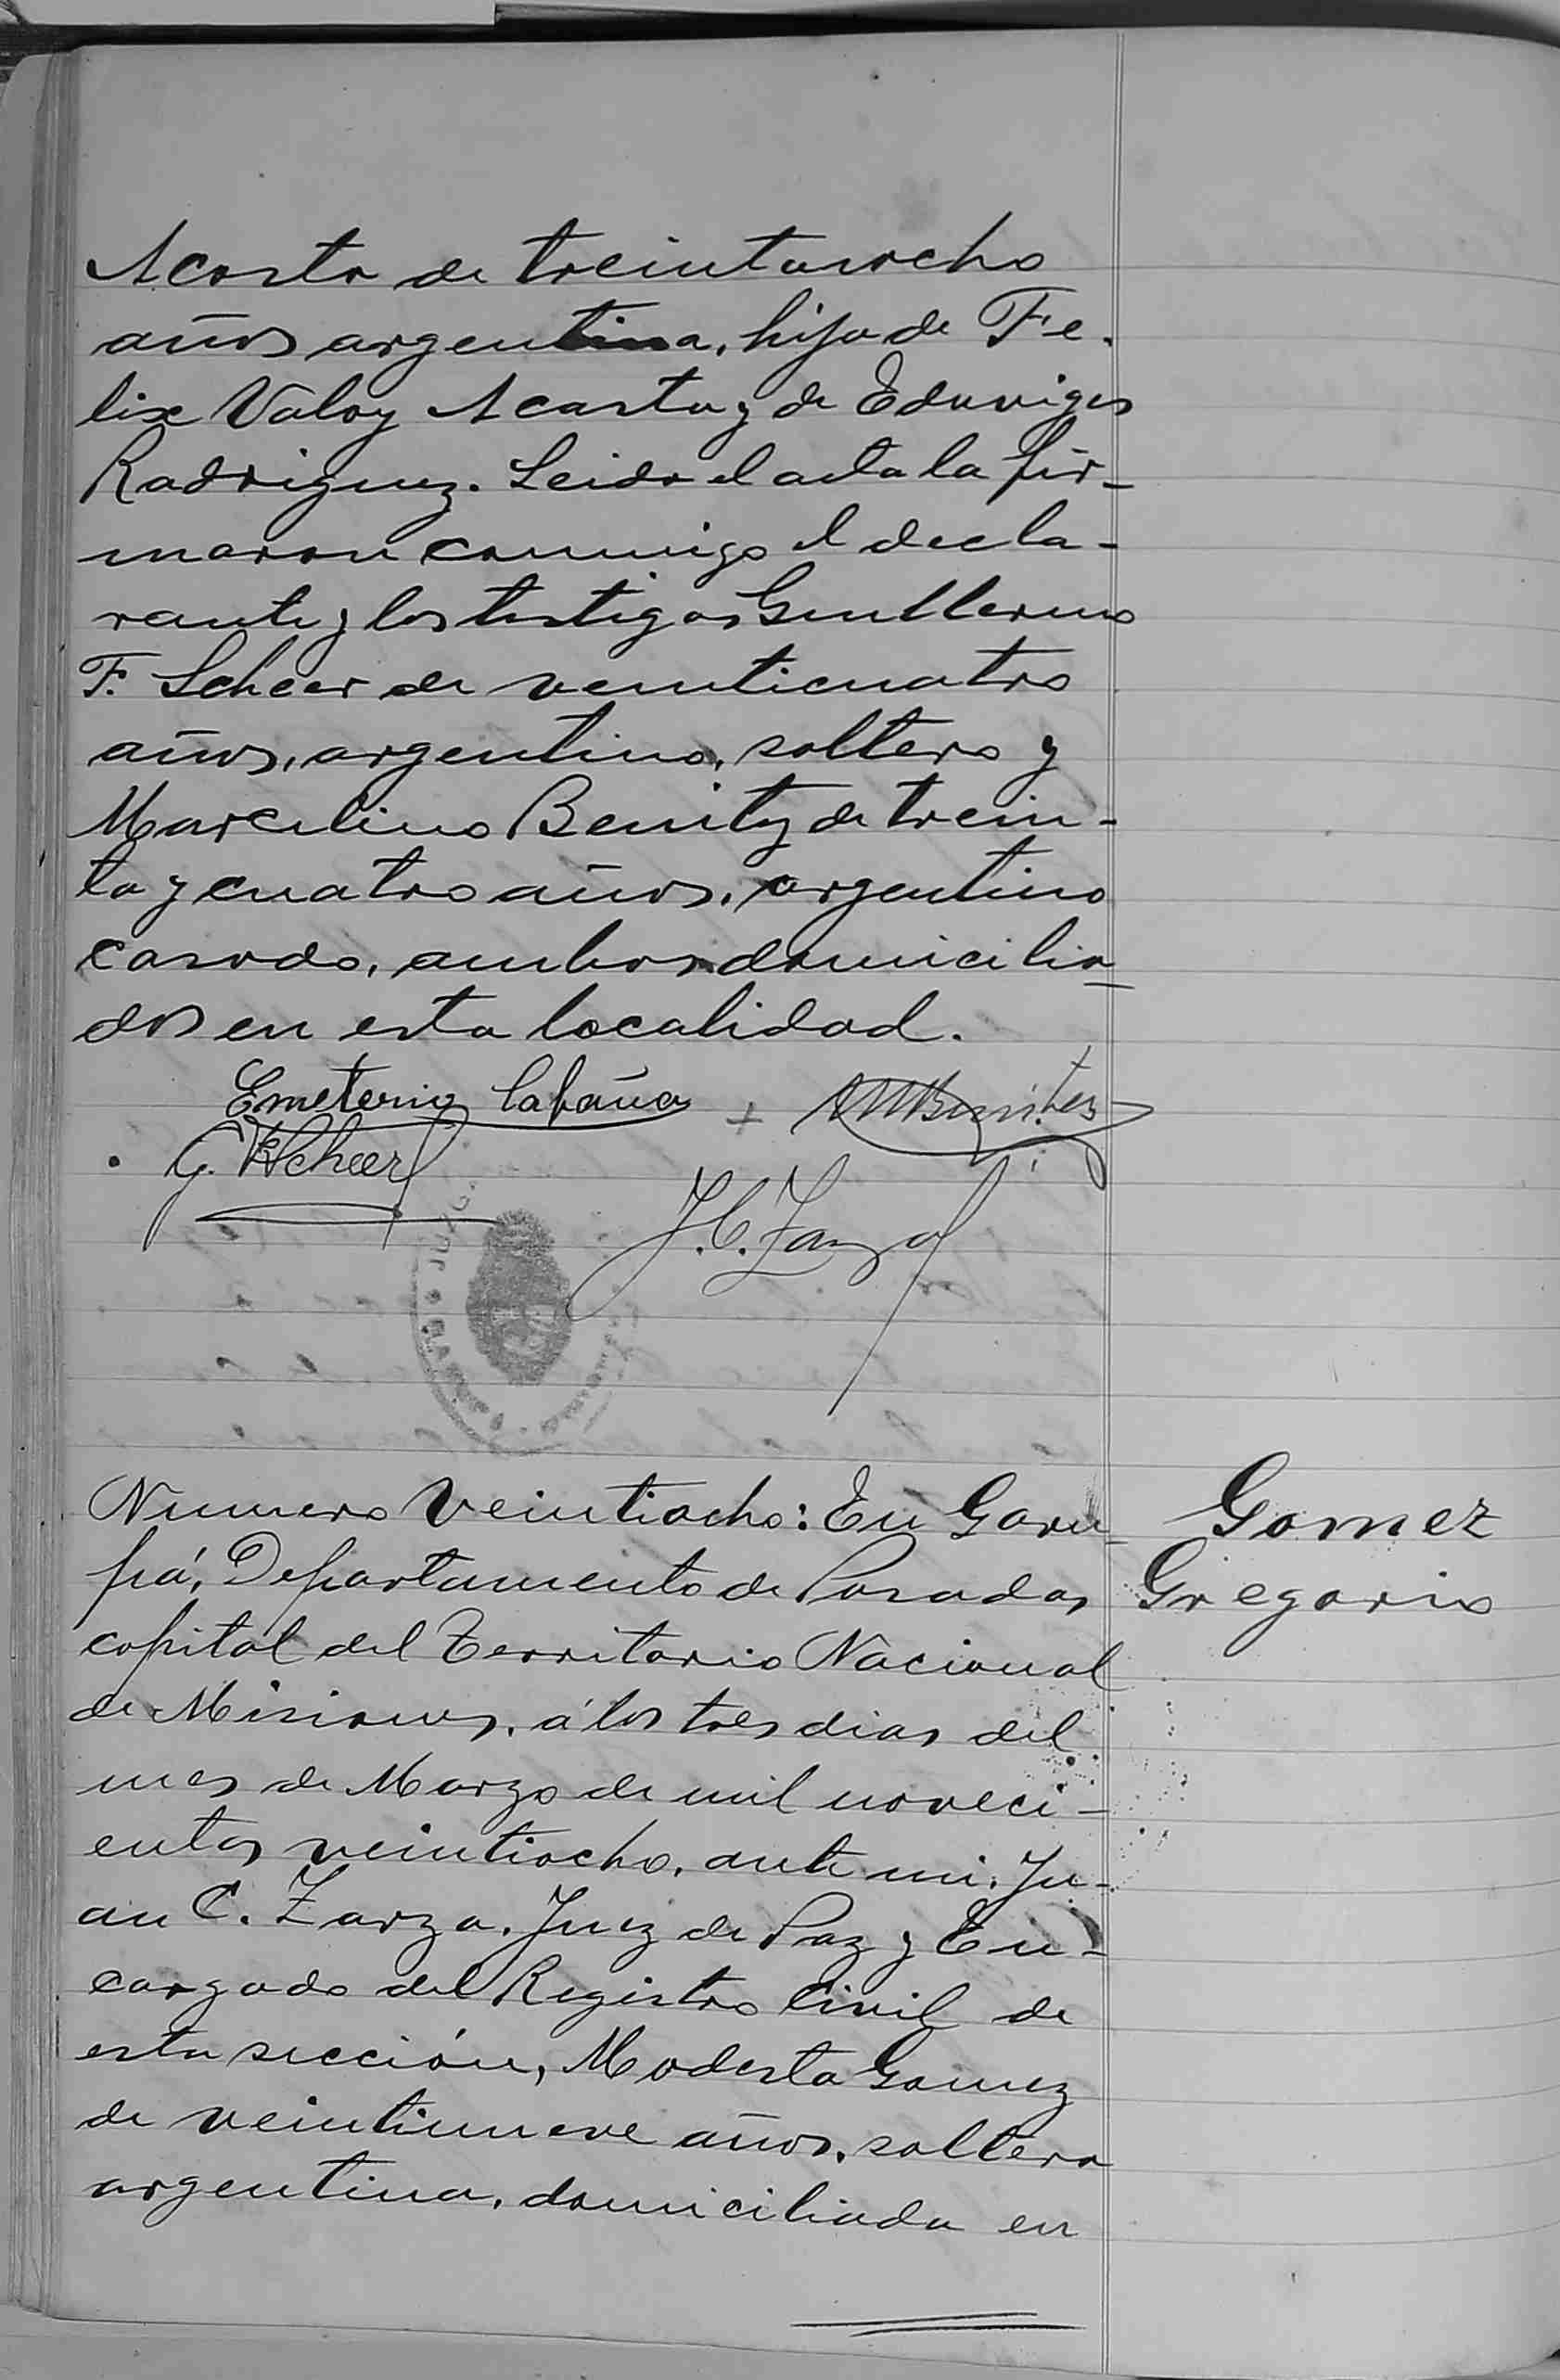 Acosta de treintaiocho
años argentina, hija de Fe-
lix Valoy Acosta y de Eduviges
Rodriguez. Leida el acta la fir-
maron conmigo el decla-
rante y los testigos Guillermo
F. Scheer de veinticuatro
años, argentino, soltero y
Marcelino Benitez de trein-
ta y cuatro años, argentino
casado, ambos domicilia-
dos en esta localidad.
Emeterio Cabaña + MBenitez
G. F. Scheer
J. C. Zarza
Numero Veintiocho: En Garu-
pá, Departamento de Posadas
capital del Territorio Nacional
de Misiones, á los tres dias del
mes de Marzo de mil noveci-
entos veintiocho, ante mi, Ju-
an C. Zarza, Juez de Paz y En-
cargado del Registro Civil de
esta sección, Modesta Gomez
de veintinueve años, soltera
argentina, domiciliada en
Gomez
Gregorio